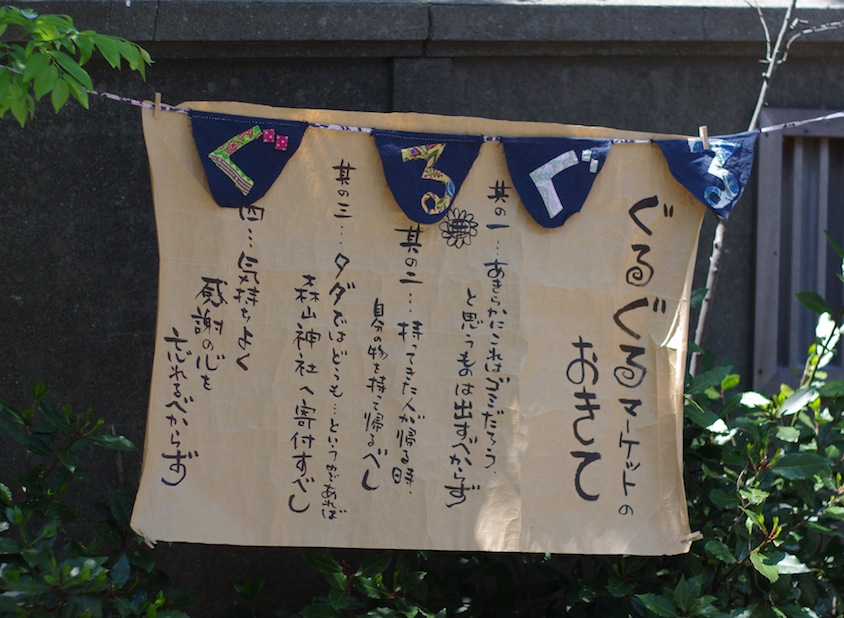 ぐるぐる
ぐるぐるマーケットの
おきて
其の一…あきらかにこれはゴミだろう、
と思うものは出すべからず
其の二…持ってきた人が帰る時、
自分の物を持って帰るべし
其の三…タダではどうも…というのであれば
森山神社へ寄付すべし
四…気持ちよく
感謝の心を
忘れるべからず